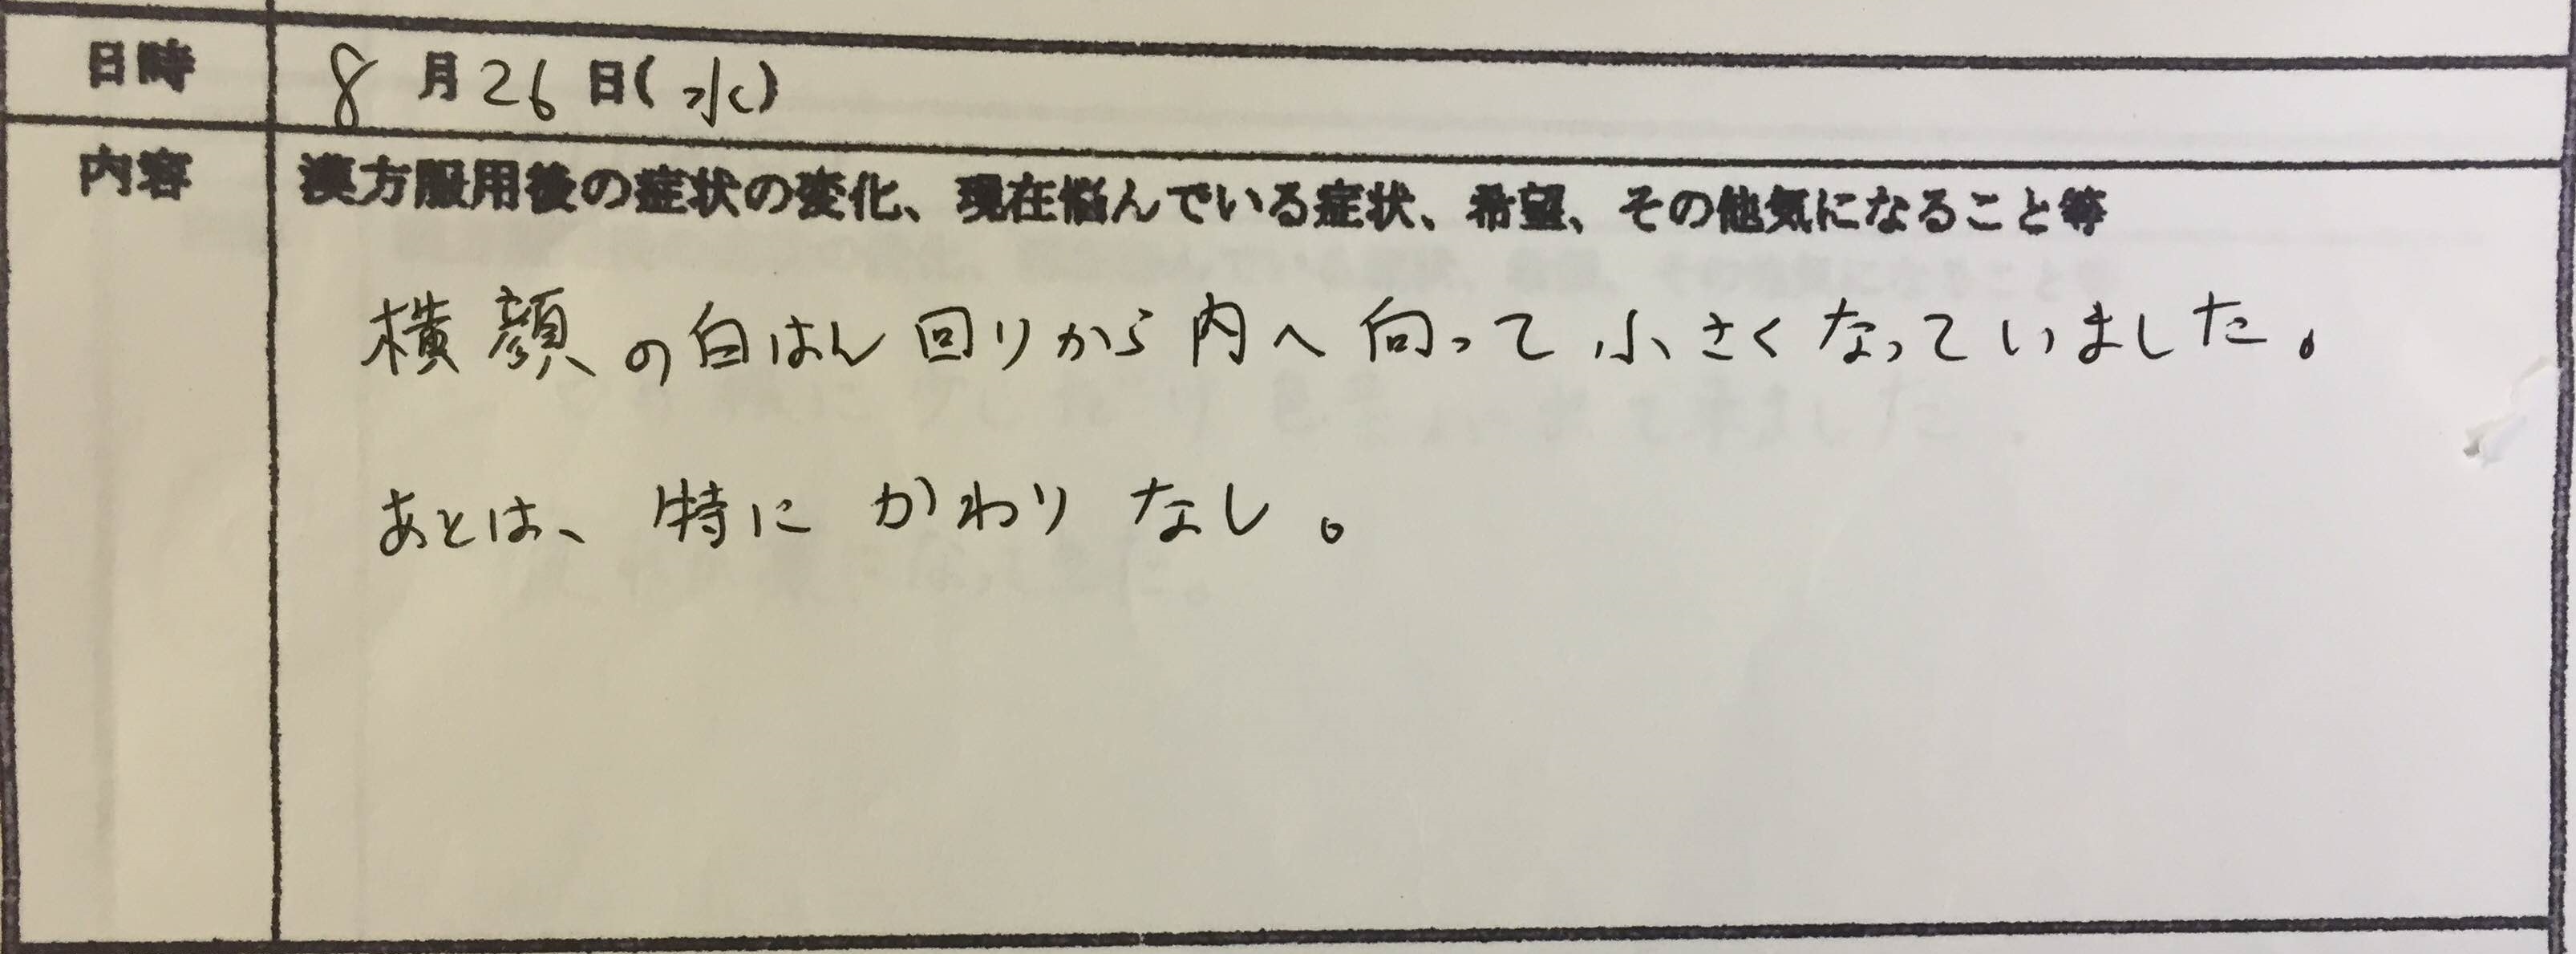 日時 8月26日(水)
内容 漢方服用後の症状の変化、現在悩んでいる症状、希望、その他気になること等
横顔の白はん回りから内へ向って小さくなっていました。
あとは、特にかわりなし。